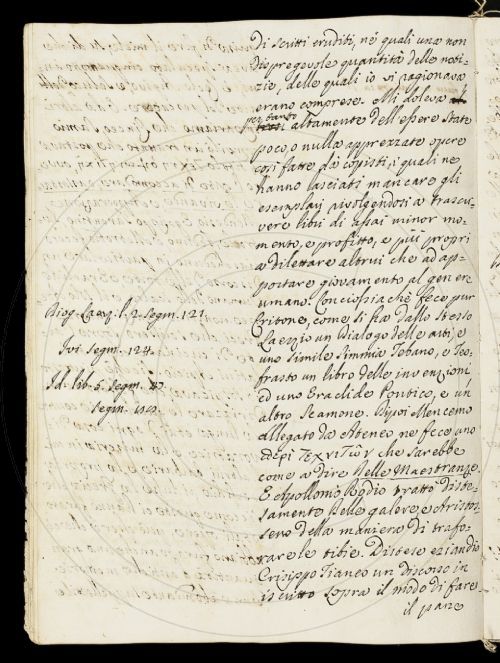 di scritti eruditi, ne' quali una non
dispregevole quantità delle noti-
zie, delle quali io vi ragionava
erano comprese. Mi doleva
per tanto
altamente dell'essere state
poco, o nulla apprezzate opere
così fatte dai copisti, i quali ne
hanno lasciati mancare gli
esemplari rivolgendosi a trascri-
vere libri di assai minor mo-
mento, e profitto, e più proprj
a dilettare altrui che ad ap-
portare giovamento al gener
umano. Conciosiachè fece pur
Critone, come si ha dallo stesso
Laerzio un Dialogo delle arti, e
uno simile Simmia Tebano, e Teo-
frasto un libro delle invenzioni
ed uno Eraclide Pontico, e un
altro Seamone. Dipoi Menecmo
allegato da Ateneo ne fece uno
περι Τεχνιτῶν che sarebbe
come a dire delle Maestranze.
E Apollonio Rodio trattò diste-
samente delle galere, e Aristos-
seno della maniera di trafo-
rare le tibie. Distese eziandio
Crisippo Tianeo un discorso in
iscritto sopra il modo di fare
il pane
Diog. Laerz. l. 2. Segm. 121.
Ivi segm. 124.
Id. lib. 5. segm.
segm.